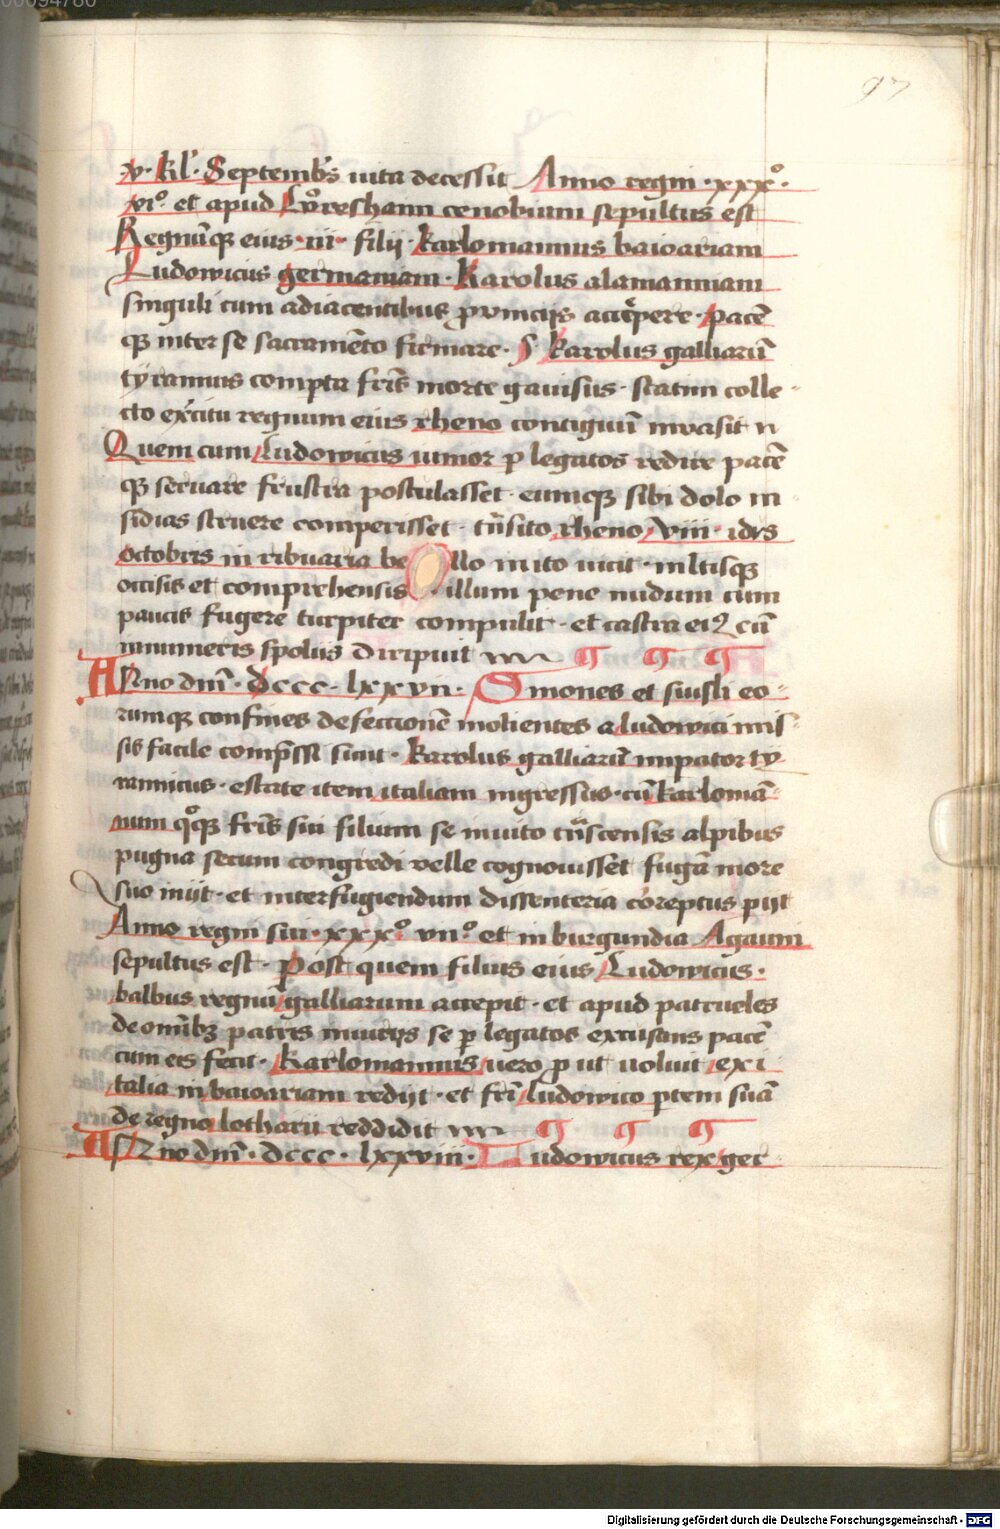 00094780
97
·v· kl̅· Septemb̅s uita decessit Anno regni ·xxx°·
vi° et apud Lǒreshann cenobium sepultus est
Regnūq̅ eius ·iii· filij karlomannus baioariam
Ludowicus germaniam · Karolus alamanniam
singuli cum adiacentibus ꝓvincijs accępere · pacē
q̅ inter se sacramēto firmare · S karolus galliarū
tyrannus compta fr̄is morte gauisus · statim colle-
cto ex̄citu regnum eius rheno contiguū invasit
Quem cum Ludowicus iunior ꝑ legatos redire pacē
q̅ seruare frustra postulasset · eumq̅ sibi dolo in-
sidias struere comperisset · tn̄sito rheno viii · idvs
octobris in ribuaria bello inito uicit · mltisq̅
occisis et comprehensis · illum pene nudum cum
paucis fugere turpiter compulit · et castra eiꝰ cū
innumeris spoliis diripuit
ANno dnī · dccc · lxxvii · Smones et siusli eo-
rumq̅ confines defectionē molientes a ludowici mis-
sis facile comp̄ssi sunt · karolus galliarū impator ty-
rannicus · estate item italiam ingressus · cū karlomā-
num q°q̅ fr̄is sui filium se inuito tn̄scensis alpibus
pugna secum congredi velle cognouissēt fugā more
suo inijt · et inter fugiendum dissenteria correptus pijt
Anno regni sui · xxx° vii° et in burgundia Agauni
sepultus est · Post quem filius eius Ludowicus ·
balbus regnū galliarum accepit · et apud patrueles
de omībꝫ patris iniurijs se ꝑ legatos excusans pacē
cum eis fecit · Karlomannus uero ꝓ ut uoluit ex i
talia in baioariam redijt · et fr̄i ludowico ptem suā
de regno lotharii reddidit
ANno dnī · dccc · lxxviii · Ludowicus rex ger-
Digitalisierung gefördert durch die Deutsche Forschungsgemeinschaft - DFG